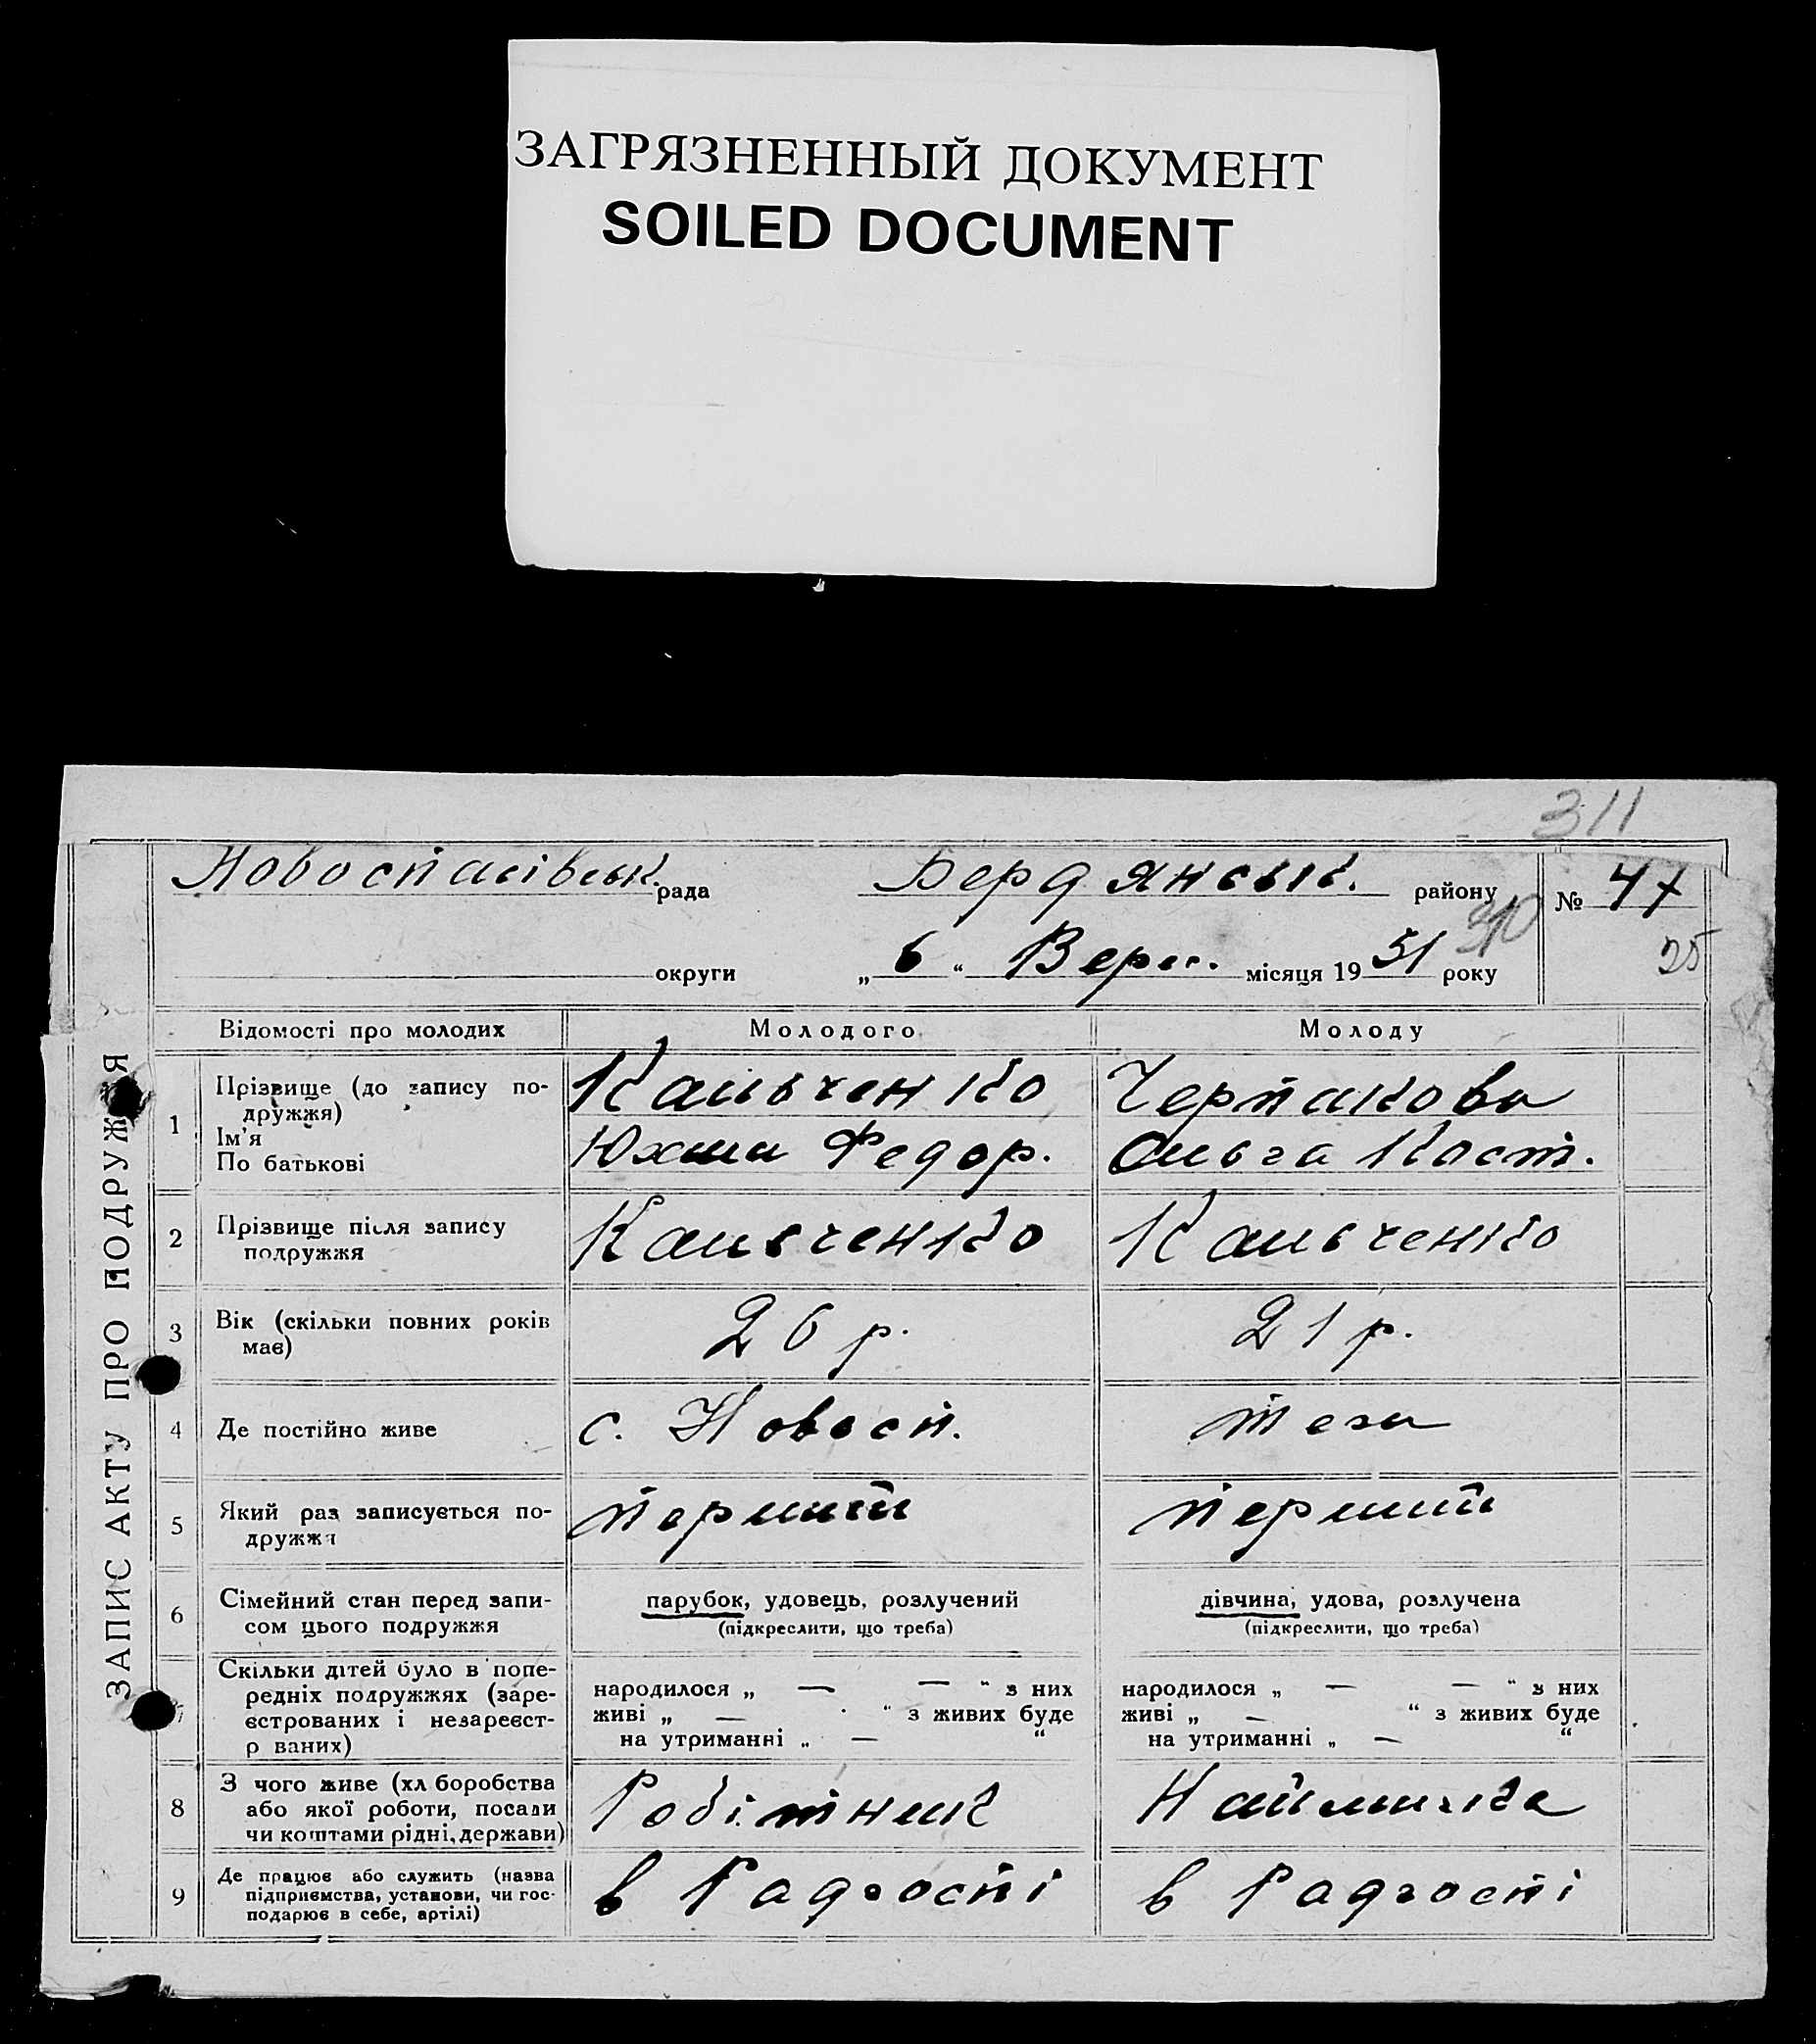 ЗАГРЯЗНЕННЫЙ ДОКУМЕНТ
SOILED DOCUMENT
311
Новоспасівськ. рада Бердянськ. району № 47
310
округи „ 6 “ Верес. місяця 19 31 року
25
ЗАПИС АКТУ ПРО ПОДРУЖЖЯ
Відомості про молодих Молодого Молоду
1 Прізвище (до запису по-
дружжя) Кальченко Черпакова
Ім'я
По батькові Юхим Федор. Ольга Кост.
2 Прізвище після запису
подружжя Кальченко Кальченко
3 Вік (скільки повних років
має) 26 р. 21 р.
4 Де постійно живе с. Новосп. теза
5 Який раз записується по-
дружжя перший перший
6 Сімейний стан перед запи-
сом цього подружжя парубок, удовець, розлучений дівчина, удова, розлучена
(підкреслити, що треба) (підкреслити, що треба)
Скільки дітей було в попе-
редніх подружжях (заре-
єстрованих і незареєст-
р ваних) народилося „ — — “ з них народилося „ — — “ з них
живі „ — “ з живих буде живі „ — “ з живих буде
на утриманні „ — “ на утриманні „ — “
8 З чого живе (хл боробства
або якої роботи, посади
чи коштами рідні, держави) Робітник Наймичка
9 Де працює або служить (назва
підприємства, установи, чи гос-
подарює в себе, артілі) в Радгоспі в Радгоспі